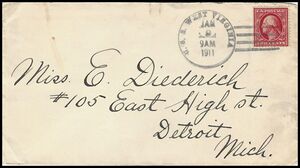 U.S.S. WEST VIRGINIA
JAN
9AM
1911
Miss. E. Diederich
#105 East High st.
Detroit
Mich.